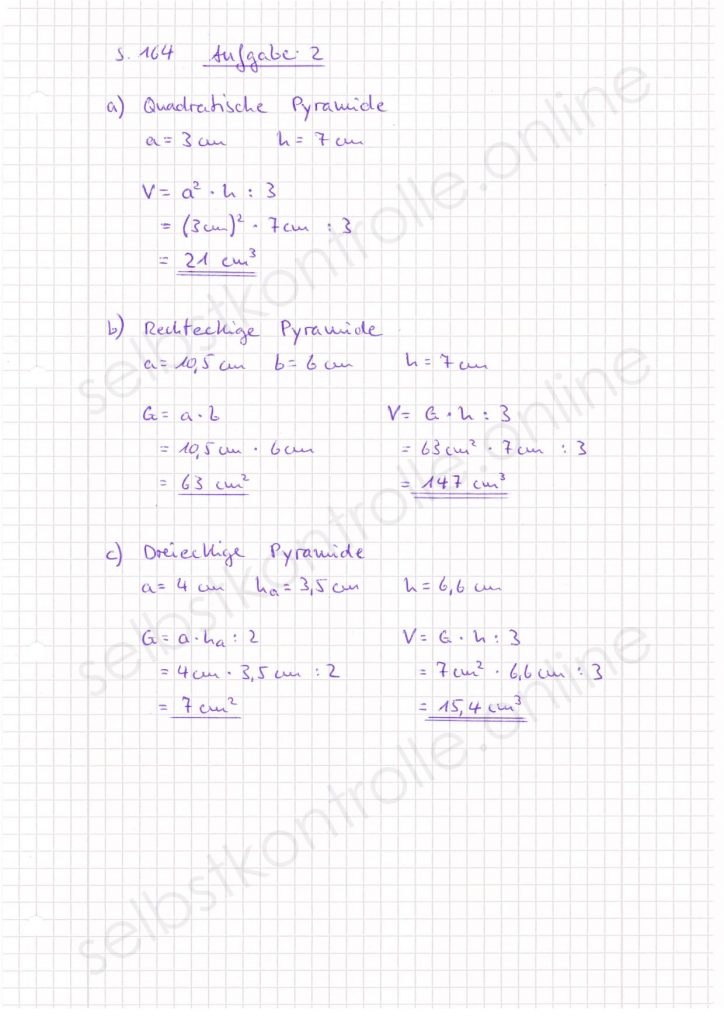 S. 164 Aufgabe 2
a) Quadratische Pyramide
a = 3 cm h = 7 cm
V = a² · h : 3
= (3cm)² · 7cm : 3
= 21 cm³
b) Rechteckige Pyramide
a = 10,5 cm b = 6 cm h = 7 cm
G = a · b V = G · h : 3
= 10,5 cm · 6 cm = 63 cm² · 7 cm : 3
= 63 cm² = 147 cm³
c) Dreieckige Pyramide
a = 4 cm hₐ = 3,5 cm h = 6,6 cm
G = a · hₐ : 2 V = G · h : 3
= 4 cm · 3,5 cm : 2 = 7 cm² · 6,6 cm : 3
= 7 cm² = 15,4 cm³
selbstkontrolle.online
selbstkontrolle.online
selbstkontrolle.online